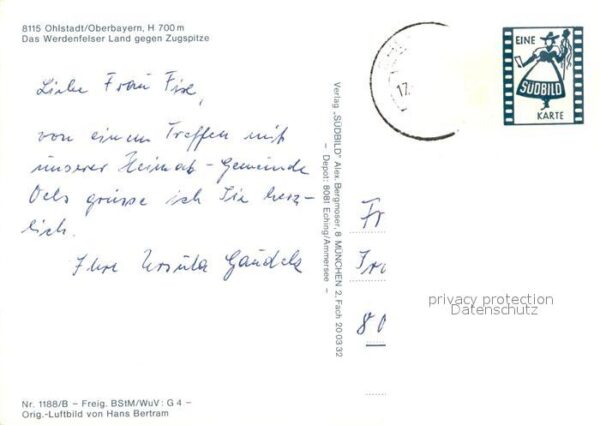 8115 Ohlstadt/Oberbayern, H 700 m
Das Werdenfelser Land gegen Zugspitze
Liebe Frau
von einem Treffen mit
unserer Heimat-Gemeinde
Oels grüsse ich Sie herz-
lich.
Ihre Ursula
Nr. 1188/B – Freig. BStM/WuV: G 4 –
Orig.-Luftbild von Hans Bertram
Verlag „SÜDBILD" Alex. Bergmoser, 8 MÜNCHEN 2, Fach 20 03 32
– Depot: 8081 Eching/Ammersee –
17.
EINE
SÜDBILD
KARTE
Fr
8
privacy protection
Datenschutz